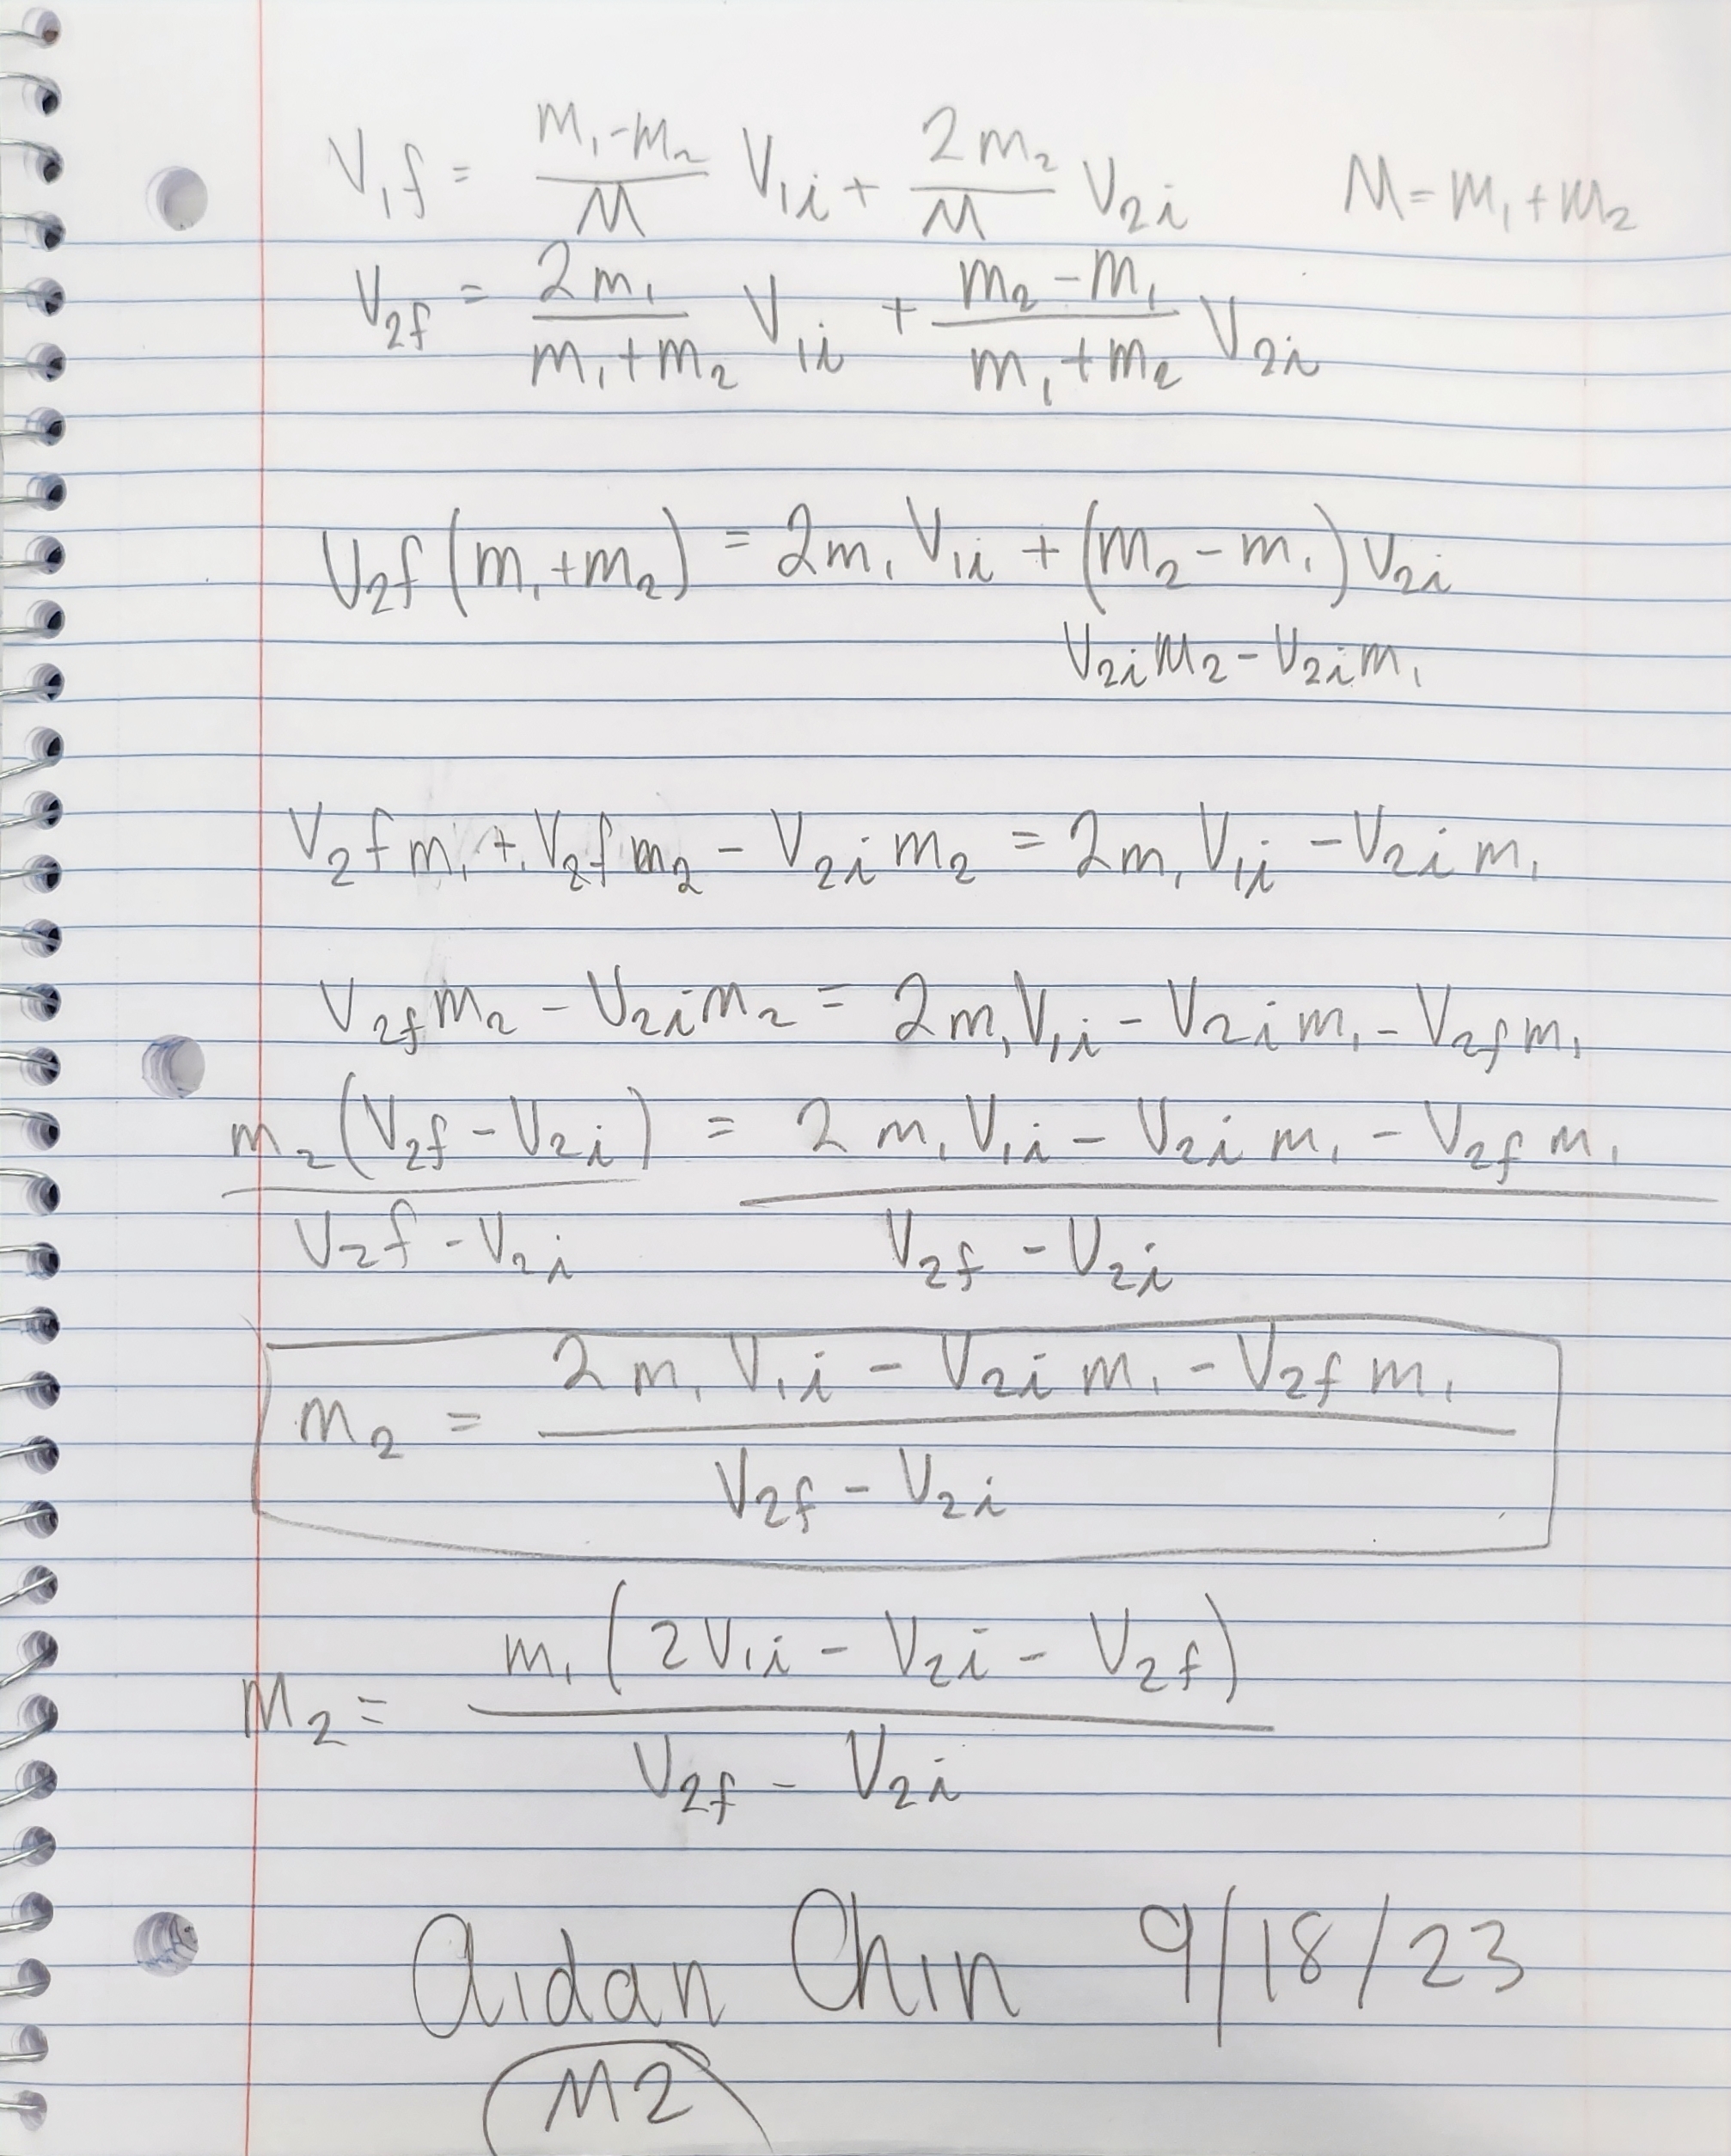 V₁f = (m₁-m₂)/M V₁i + 2m₂/M V₂i M=m₁+m₂
V₂f = 2m₁/(m₁+m₂) V₁i + (m₂-m₁)/(m₁+m₂) V₂i
V₂f(m₁+m₂) = 2m₁V₁i + (m₂-m₁)V₂i
V₂im₂-V₂im₁
V₂fm₁+V₂fm₂-V₂im₂ = 2m₁V₁i-V₂im₁
V₂fm₂-V₂im₂ = 2m₁V₁i-V₂im₁-V₂fm₁
m₂(V₂f-V₂i)/(V₂f-V₂i) = (2m₁V₁i-V₂im₁-V₂fm₁)/(V₂f-V₂i)
m₂ = (2m₁V₁i-V₂im₁-V₂fm₁)/(V₂f-V₂i)
M₂ = m₁(2V₁i-V₂i-V₂f)/(V₂f-V₂i)
Aidan Chin 9/18/23
M2